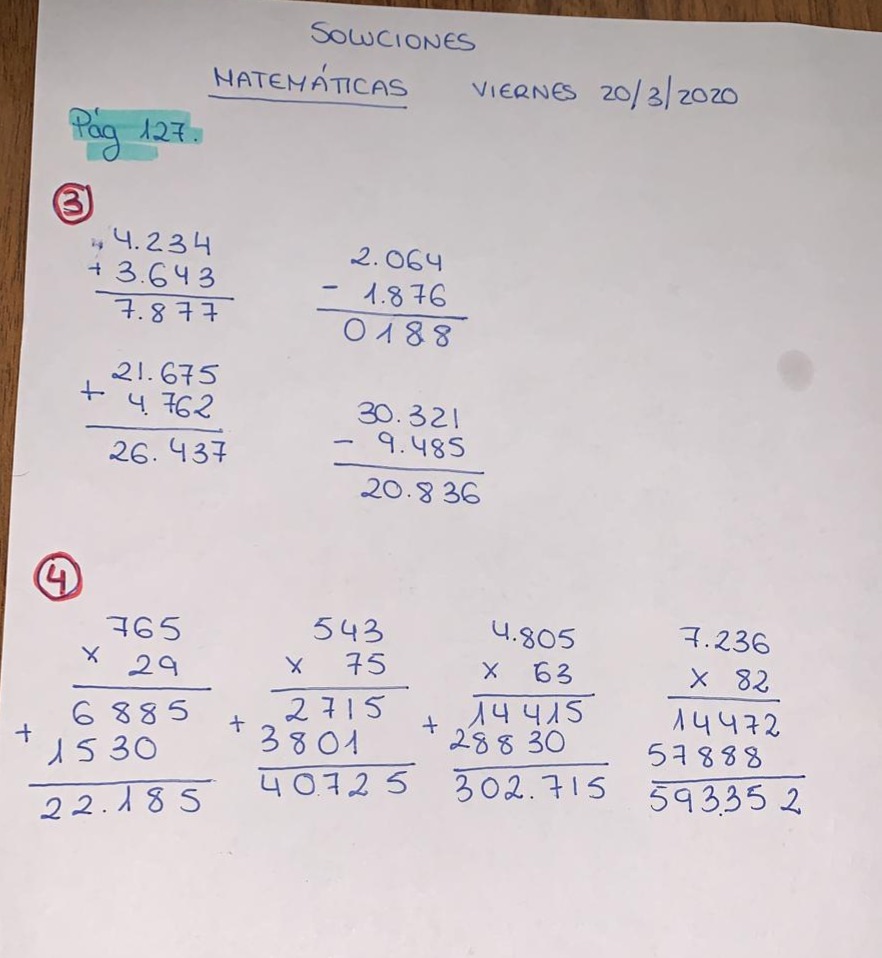 SOLUCIONES
MATEMÁTICAS VIERNES 20/3/2020
Pág 127.
3
4.234
+ 3.643
7.877
2.064
- 1.876
0188
21.675
+ 4.762
26.437
30.321
- 9.485
20.836
4
765
x 29
6885
+ 1530
22.185
543
x 75
2715
+ 3801
40.725
4.805
x 63
14415
+ 28830
302.715
7.236
x 82
14472
57888
593.352